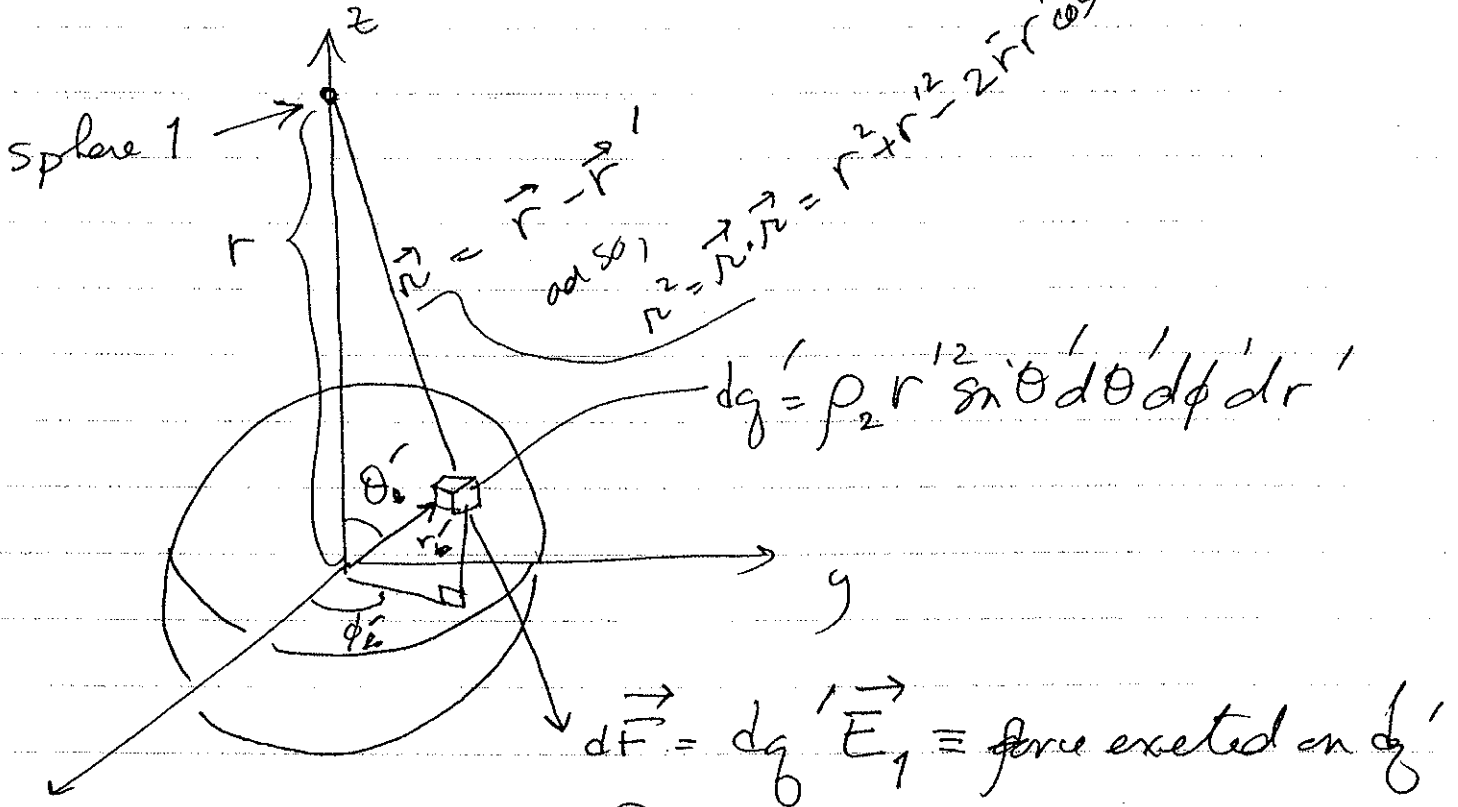 z
sphere 1
r
𝓇⃗ = r⃗ - r⃗'
and so,
𝓇² = 𝓇⃗·𝓇⃗ = r² + r'² - 2rr'cos
dq' = ρ₂ r'² sinθ'dθ'dϕ'dr'
θ'
r'
y
ϕ'
dF⃗ = dq'E⃗₁ ≡ force exerted on dq'